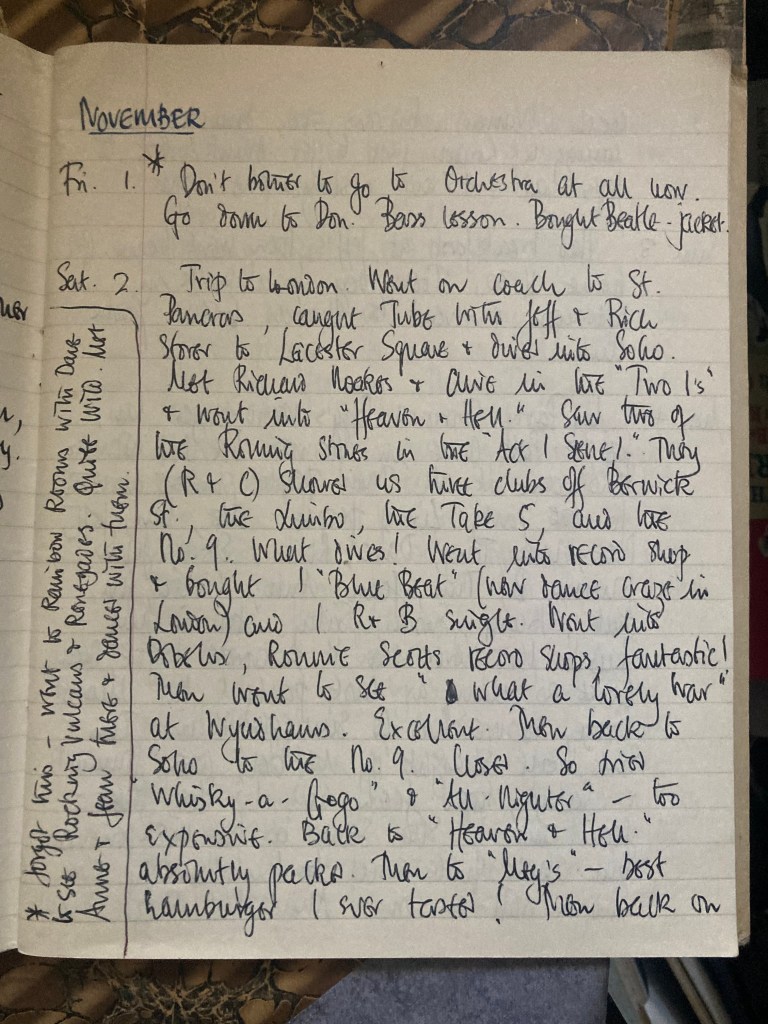 NOVEMBER
Fri. 1. * Don't bother to go to Orchestra at all now.
Go down to Don. Bass lesson. Bought Beatle-jacket.
Sat. 2. Trip to London. Went on coach to St.
Pancras, caught Tube with Jeff + Rich
Storer to Leicester Square + dived into Soho.
Met Richard Noakes + Clive in the "Two I's"
+ went into "Heaven + Hell." Saw two of
the Rolling Stones in the "Act 1 Scene 1." They
(R + C) showed us three clubs off Berwick
St., the Limbo, the Take 5, and the
No. 9. What dives! Went into record shop
+ bought 1 "Blue Beat" (new dance craze in
London) and 1 R + B single. Went into
Dobells, Ronnie Scotts record shops, fantastic!
Then went to see "what a lovely war"
at Wyndhams. Excellent. Then back to
Soho to the No. 9. Closed. So tried
"Whisky-a-Gogo" & "All-Nighter" – too
expensive. Back to "Heaven & Hell."
absolutly packed. Then to "Meg's" – best
hamburger I ever tasted! Then back on
* forgot this – went to Rainbow Rooms with Dave
to see Rocking Vulcans & Renegades. Quite wild. Met
Anne + Jean there + danced with them.